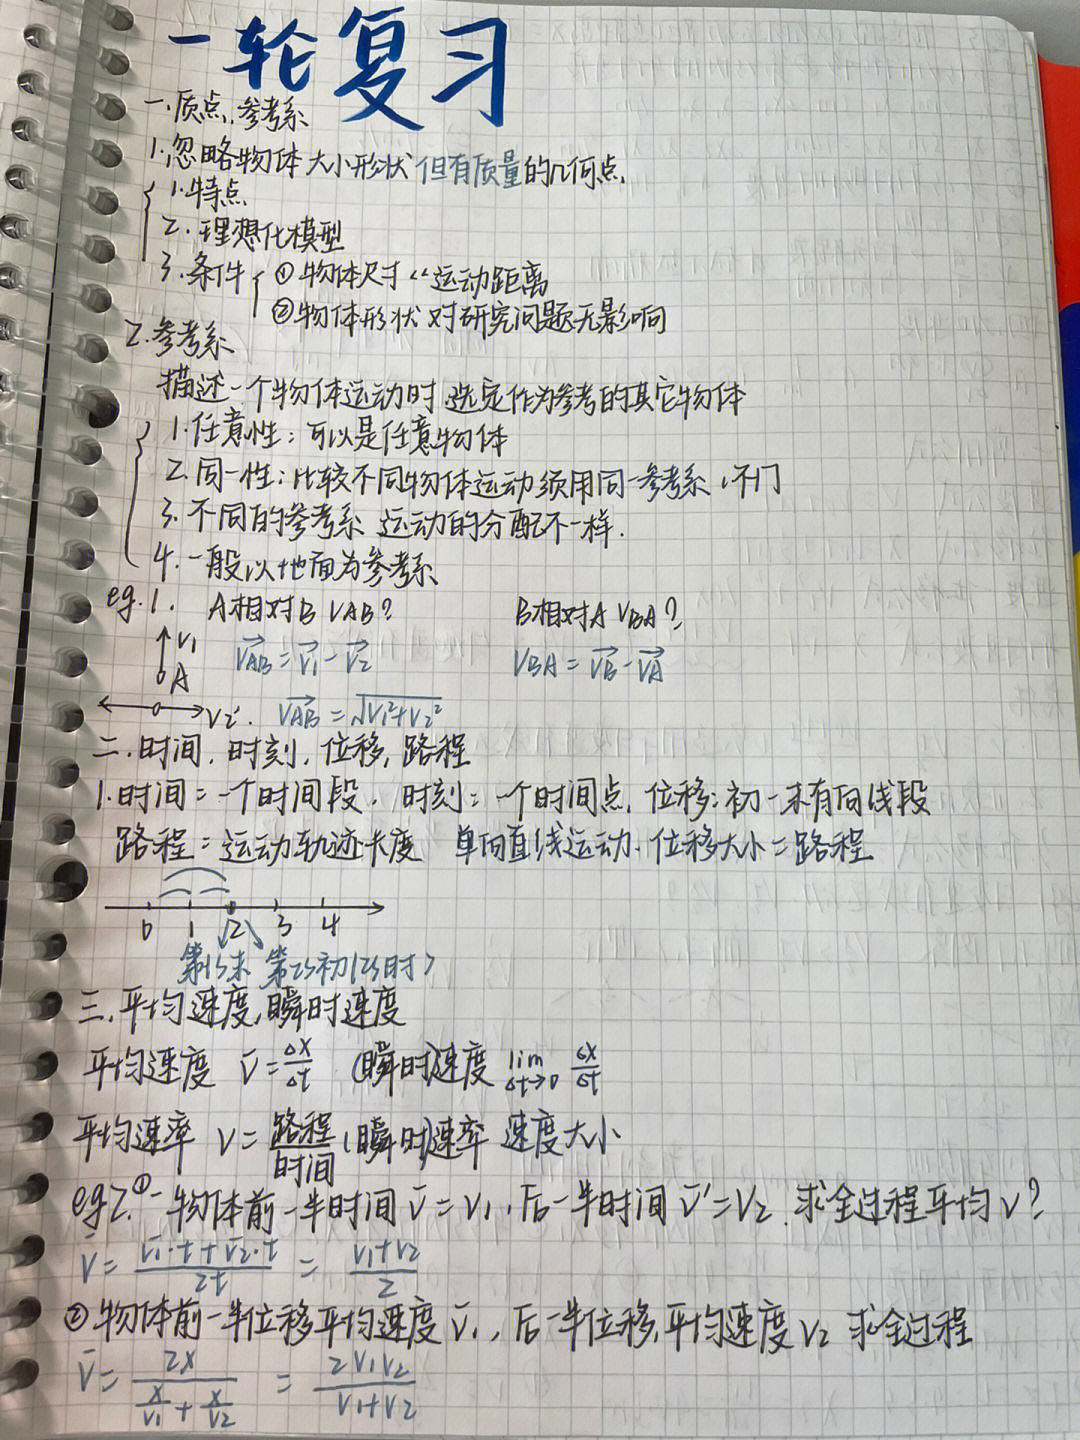 一轮复习
一.质点,参考系
1.忽略物体大小形状但有质量的几何点.
1.特点
2.理想化模型
3.条件 ①物体尺寸<<运动距离
②物体形状对研究问题无影响
2.参考系
描述一个物体运动时.选定作为参考的其它物体
1.任意性:可以是任意物体
2.同一性:比较不同物体运动须用同一参考系
3.不同的参考系 运动的分配不一样.
4.一般以地面为参考系
eg.1. A相对B VAB? B相对A VBA?
V₁ VAB=V₁-V₂ VBA=VB-VA
A
V₂. VAB=√V₁²+V₂²
二.时间,时刻,位移,路程
1.时间=一个时间段. 时刻:一个时间点. 位移:初-末有向线段
路程=运动轨迹长度 单向直线运动.位移大小=路程
0 1 2 3 4
第1s末 第2s初
三.平均速度,瞬时速度
平均速度 V̄=Δx/Δt 瞬时速度 lim Δt→0 Δx/Δt
平均速率 V=路程/时间 瞬时速率 速度大小
eg2.①一物体前一半时间V̄=V₁,后一半时间V̄'=V₂.求全过程平均V?
V̄=(V̄₁·t+V̄₂·t)/2t=(V₁+V₂)/2
②物体前一半位移平均速度V̄₁,后一半位移,平均速度V₂ 求全过程
V̄=2x/(x/V₁+x/V₂)=2V₁V₂/(V₁+V₂)